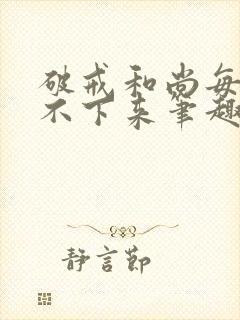 破戒和尚每
不下来笔趣
静言节